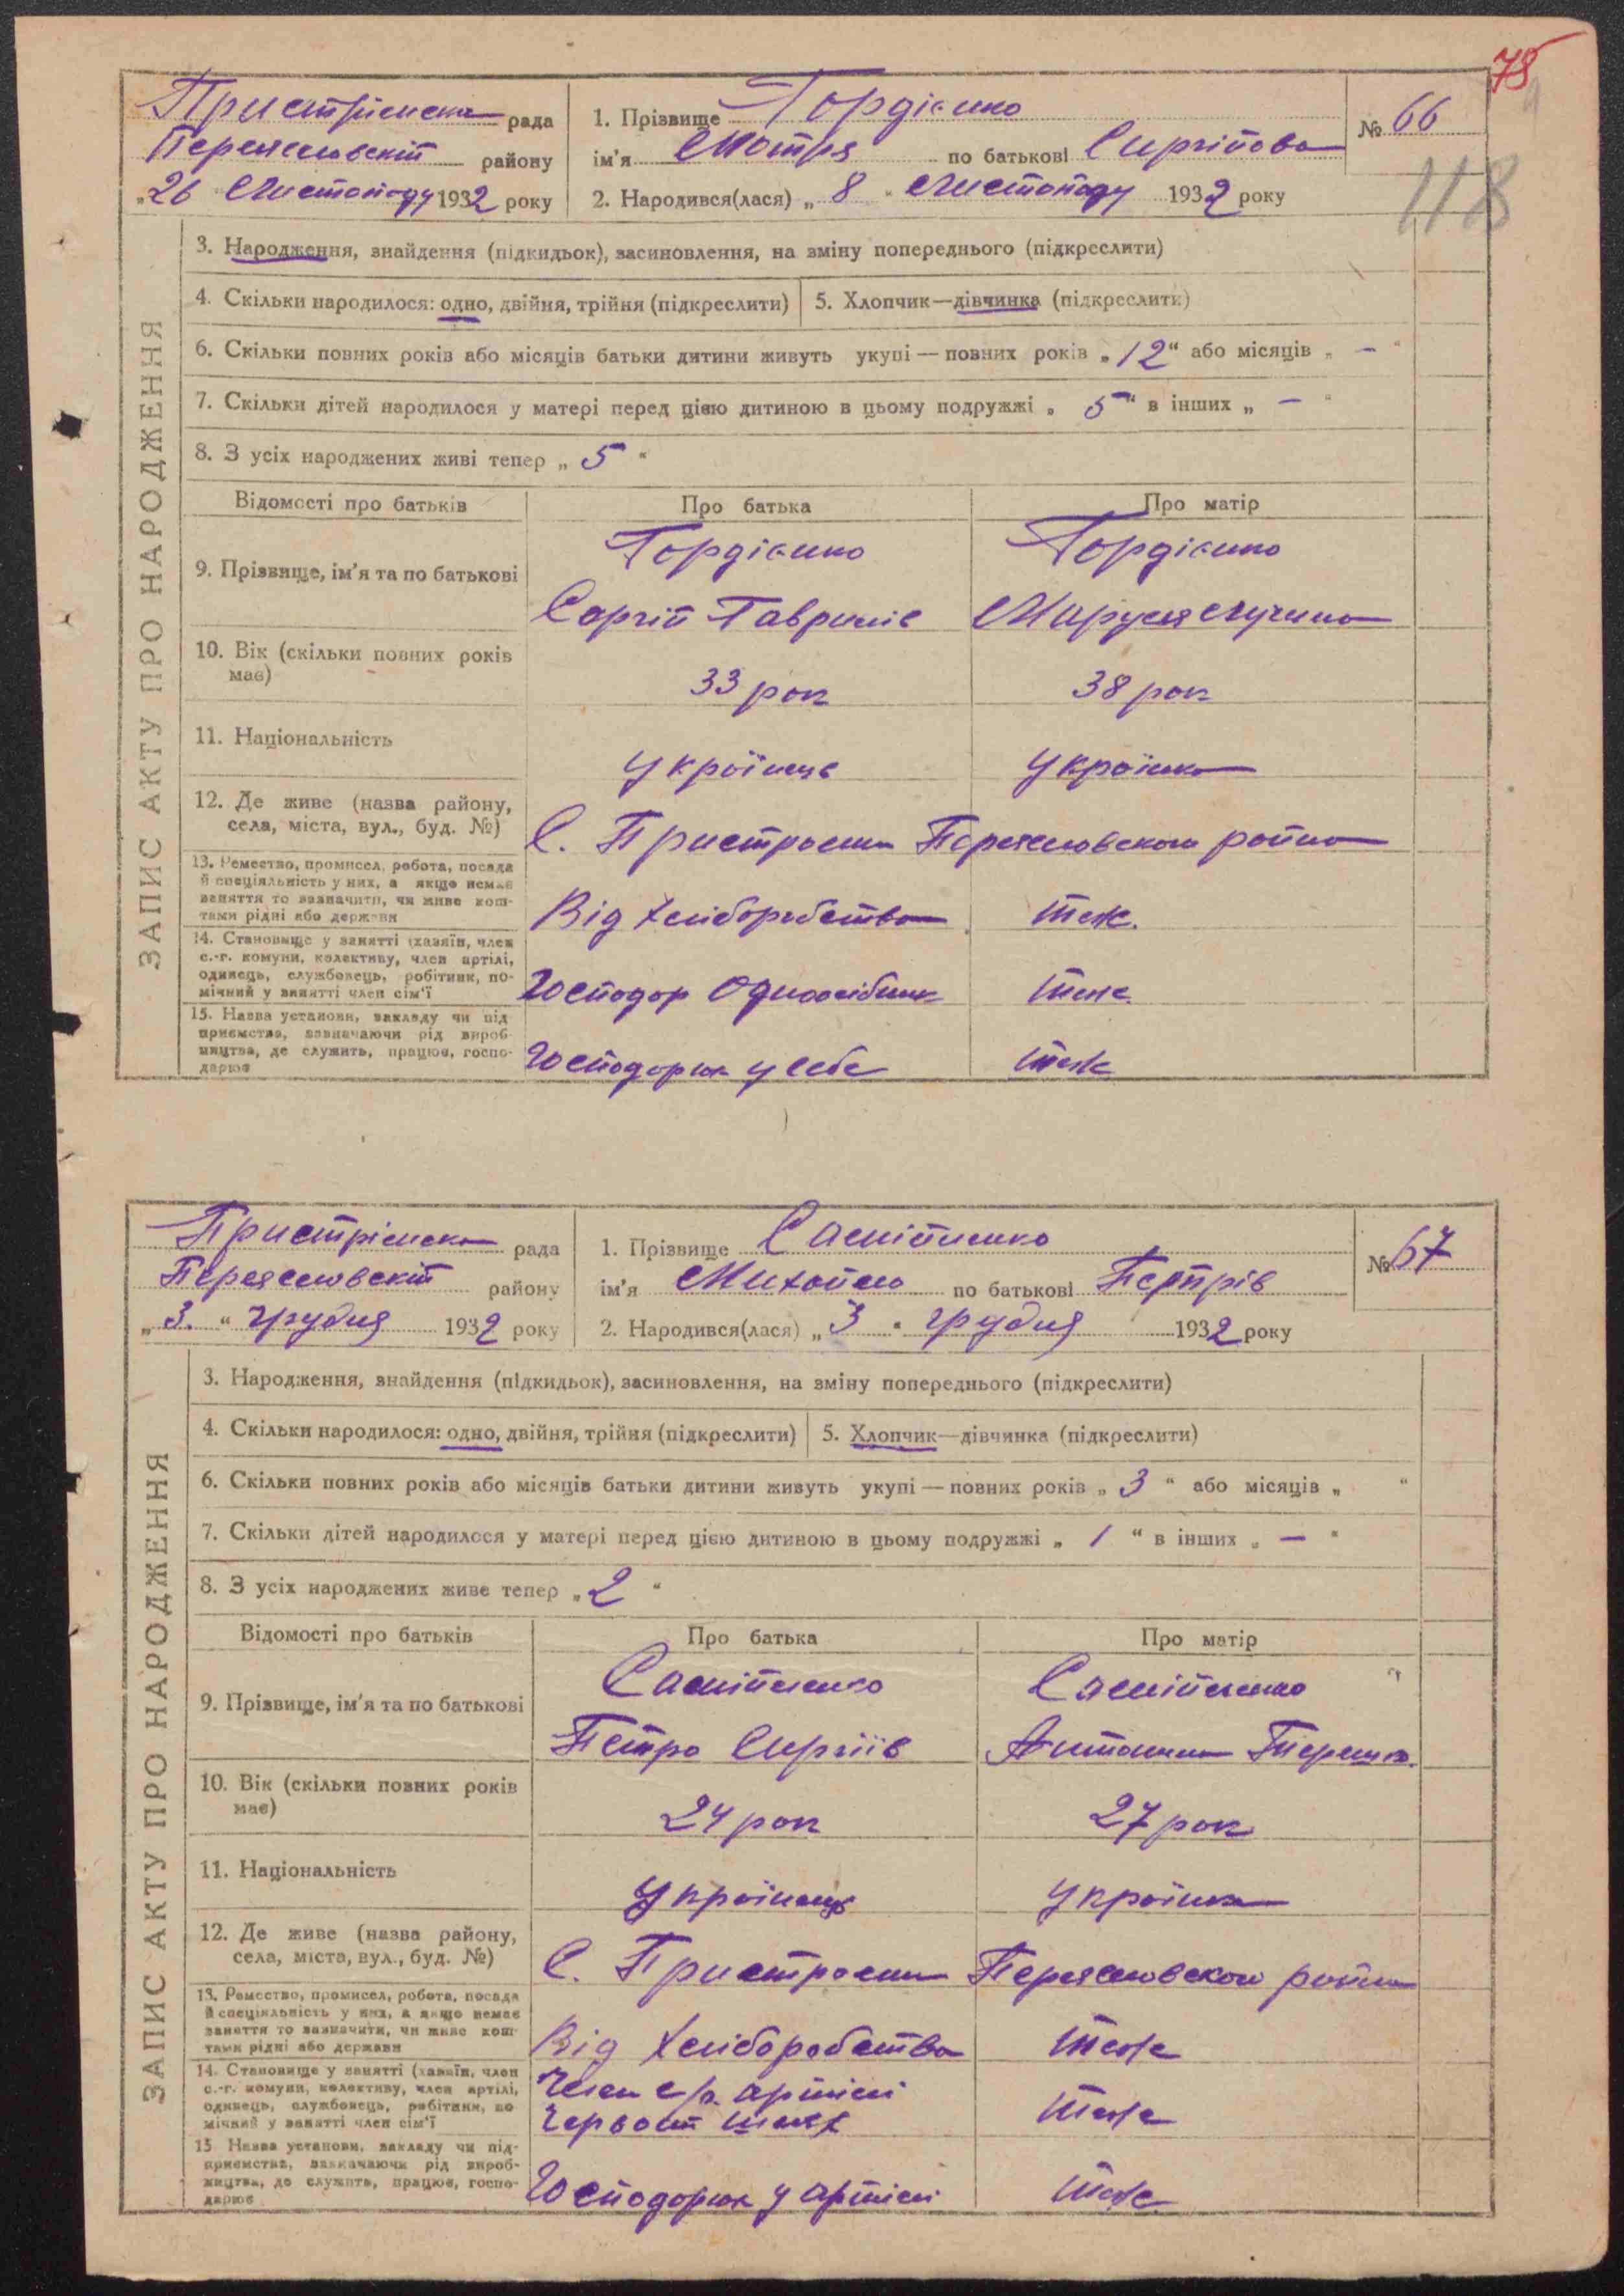 78
118
Пристрімська рада
Переяславський району
„26 Листопаду 1932 року
1. Прізвище Гордієнко
ім'я Мотря по батькові Сиргіпова
№ 66
2. Народився(лася) „8" Листопаду 1932 року
ЗАПИС АКТУ ПРО НАРОДЖЕННЯ
3. Народження, знайдення (підкидьок), засиновлення, на зміну попереднього (підкреслити)
4. Скільки народилося: одно, двійня, трійня (підкреслити) 5. Хлопчик—дівчинка (підкреслити)
6. Скільки повних років або місяців батьки дитини живуть укупі — повних років „12" або місяців „—"
7. Скільки дітей народилося у матері перед цією дитиною в цьому подружжі „5" в інших „—"
8. З усіх народжених живі тепер „5"
Відомості про батьків Про батька Про матір
9. Прізвище, ім'я та по батькові
Гордієнко Гордієнко
Сергій Гаврилів Маруся
10. Вік (скільки повних років має)
33 рок 38 рок
11. Національність
українець українка
12. Де живе (назва району,
села, міста, вул., буд. №)
С. Пристроми Переяславського району
13. Ремество, промисел, робота, посада
й спеціяльність у них, а якщо немає
заняття то зазначити, чи живе кош-
тами рідні або держави
Від хліборобства теж.
14. Становище у занятті (хазяїн, член
с.-г. комуни, колективу, член артілі,
одинець, службовець, робітник, по-
мічний у занятті член сім'ї
Господор одноосібник теж.
15. Назва установи, закладу чи під-
приємства, зазначаючи рід вироб-
ництва, де служить, працює, госпо-
дарює
Господорює у себе теж
Пристрімська рада
Переяславський району
„3." грудня 1932 року
1. Прізвище Самійленко
ім'я Михайло по батькові Петрів
№ 67
2. Народився(лася) „3" грудня 1932 року
ЗАПИС АКТУ ПРО НАРОДЖЕННЯ
3. Народження, знайдення (підкидьок), засиновлення, на зміну попереднього (підкреслити)
4. Скільки народилося: одно, двійня, трійня (підкреслити) 5. Хлопчик—дівчинка (підкреслити)
6. Скільки повних років або місяців батьки дитини живуть укупі — повних років „3" або місяців „ "
7. Скільки дітей народилося у матері перед цією дитиною в цьому подружжі „1" в інших „—"
8. З усіх народжених живе тепер „2"
Відомості про батьків Про батька Про матір
9. Прізвище, ім'я та по батькові
Самійленко Самійленко
Петро Сиргіїв Антонина
10. Вік (скільки повних років має)
24 рок 27 рок
11. Національність
українець українка
12. Де живе (назва району,
села, міста, вул., буд. №)
С. Пристроми Переяславського району
13. Ремество, промисел, робота, посада
й спеціяльність у них, а якщо немає
заняття то зазначити, чи живе кош-
тами рідні або держави
Від хліборобства теж
14. Становище у занятті (хазяїн, член
с.-г. комуни, колективу, член артілі,
одинець, службовець, робітник, по-
мічний у занятті член сім'ї
Член с/г. артілі
Червоний шлях теж
15 Назва установи, закладу чи під-
приємства, зазначаючи рід вироб-
ництва, де служить, працює, госпо-
дарює
Господорює у артілі теж